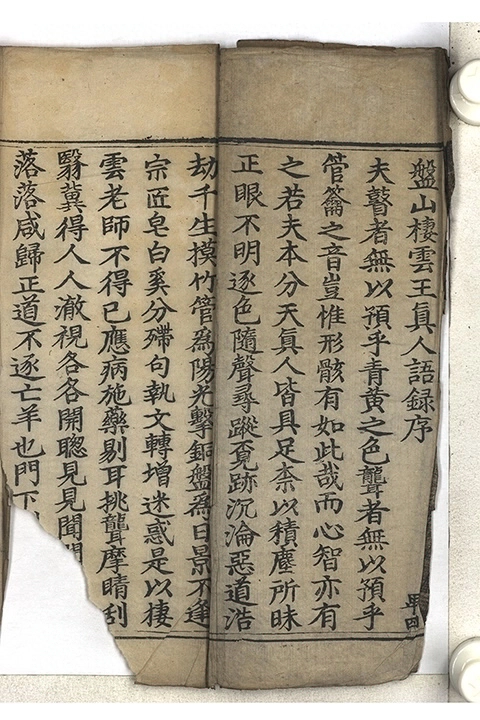 盤山棲雲王真人語録序
夫瞽者無以預乎青黃之色聾者無以預乎
甲四
管籥之音豈惟形骸有如此哉而心智亦有
之若夫本分天真人皆具足柰以積塵所昧
正眼不明逐色隨聲尋蹤覓跡沉淪惡道浩
劫千生摸竹管爲陽光擊銅盤爲日景不逢
宗匠皂白奚分殢句執文轉增迷惑是以棲
雲老師不得已應病施藥剔耳挑聾摩睛刮
翳冀得人人澈視各各開聰見見聞聞
落落咸歸正道不逐亡羊也門下